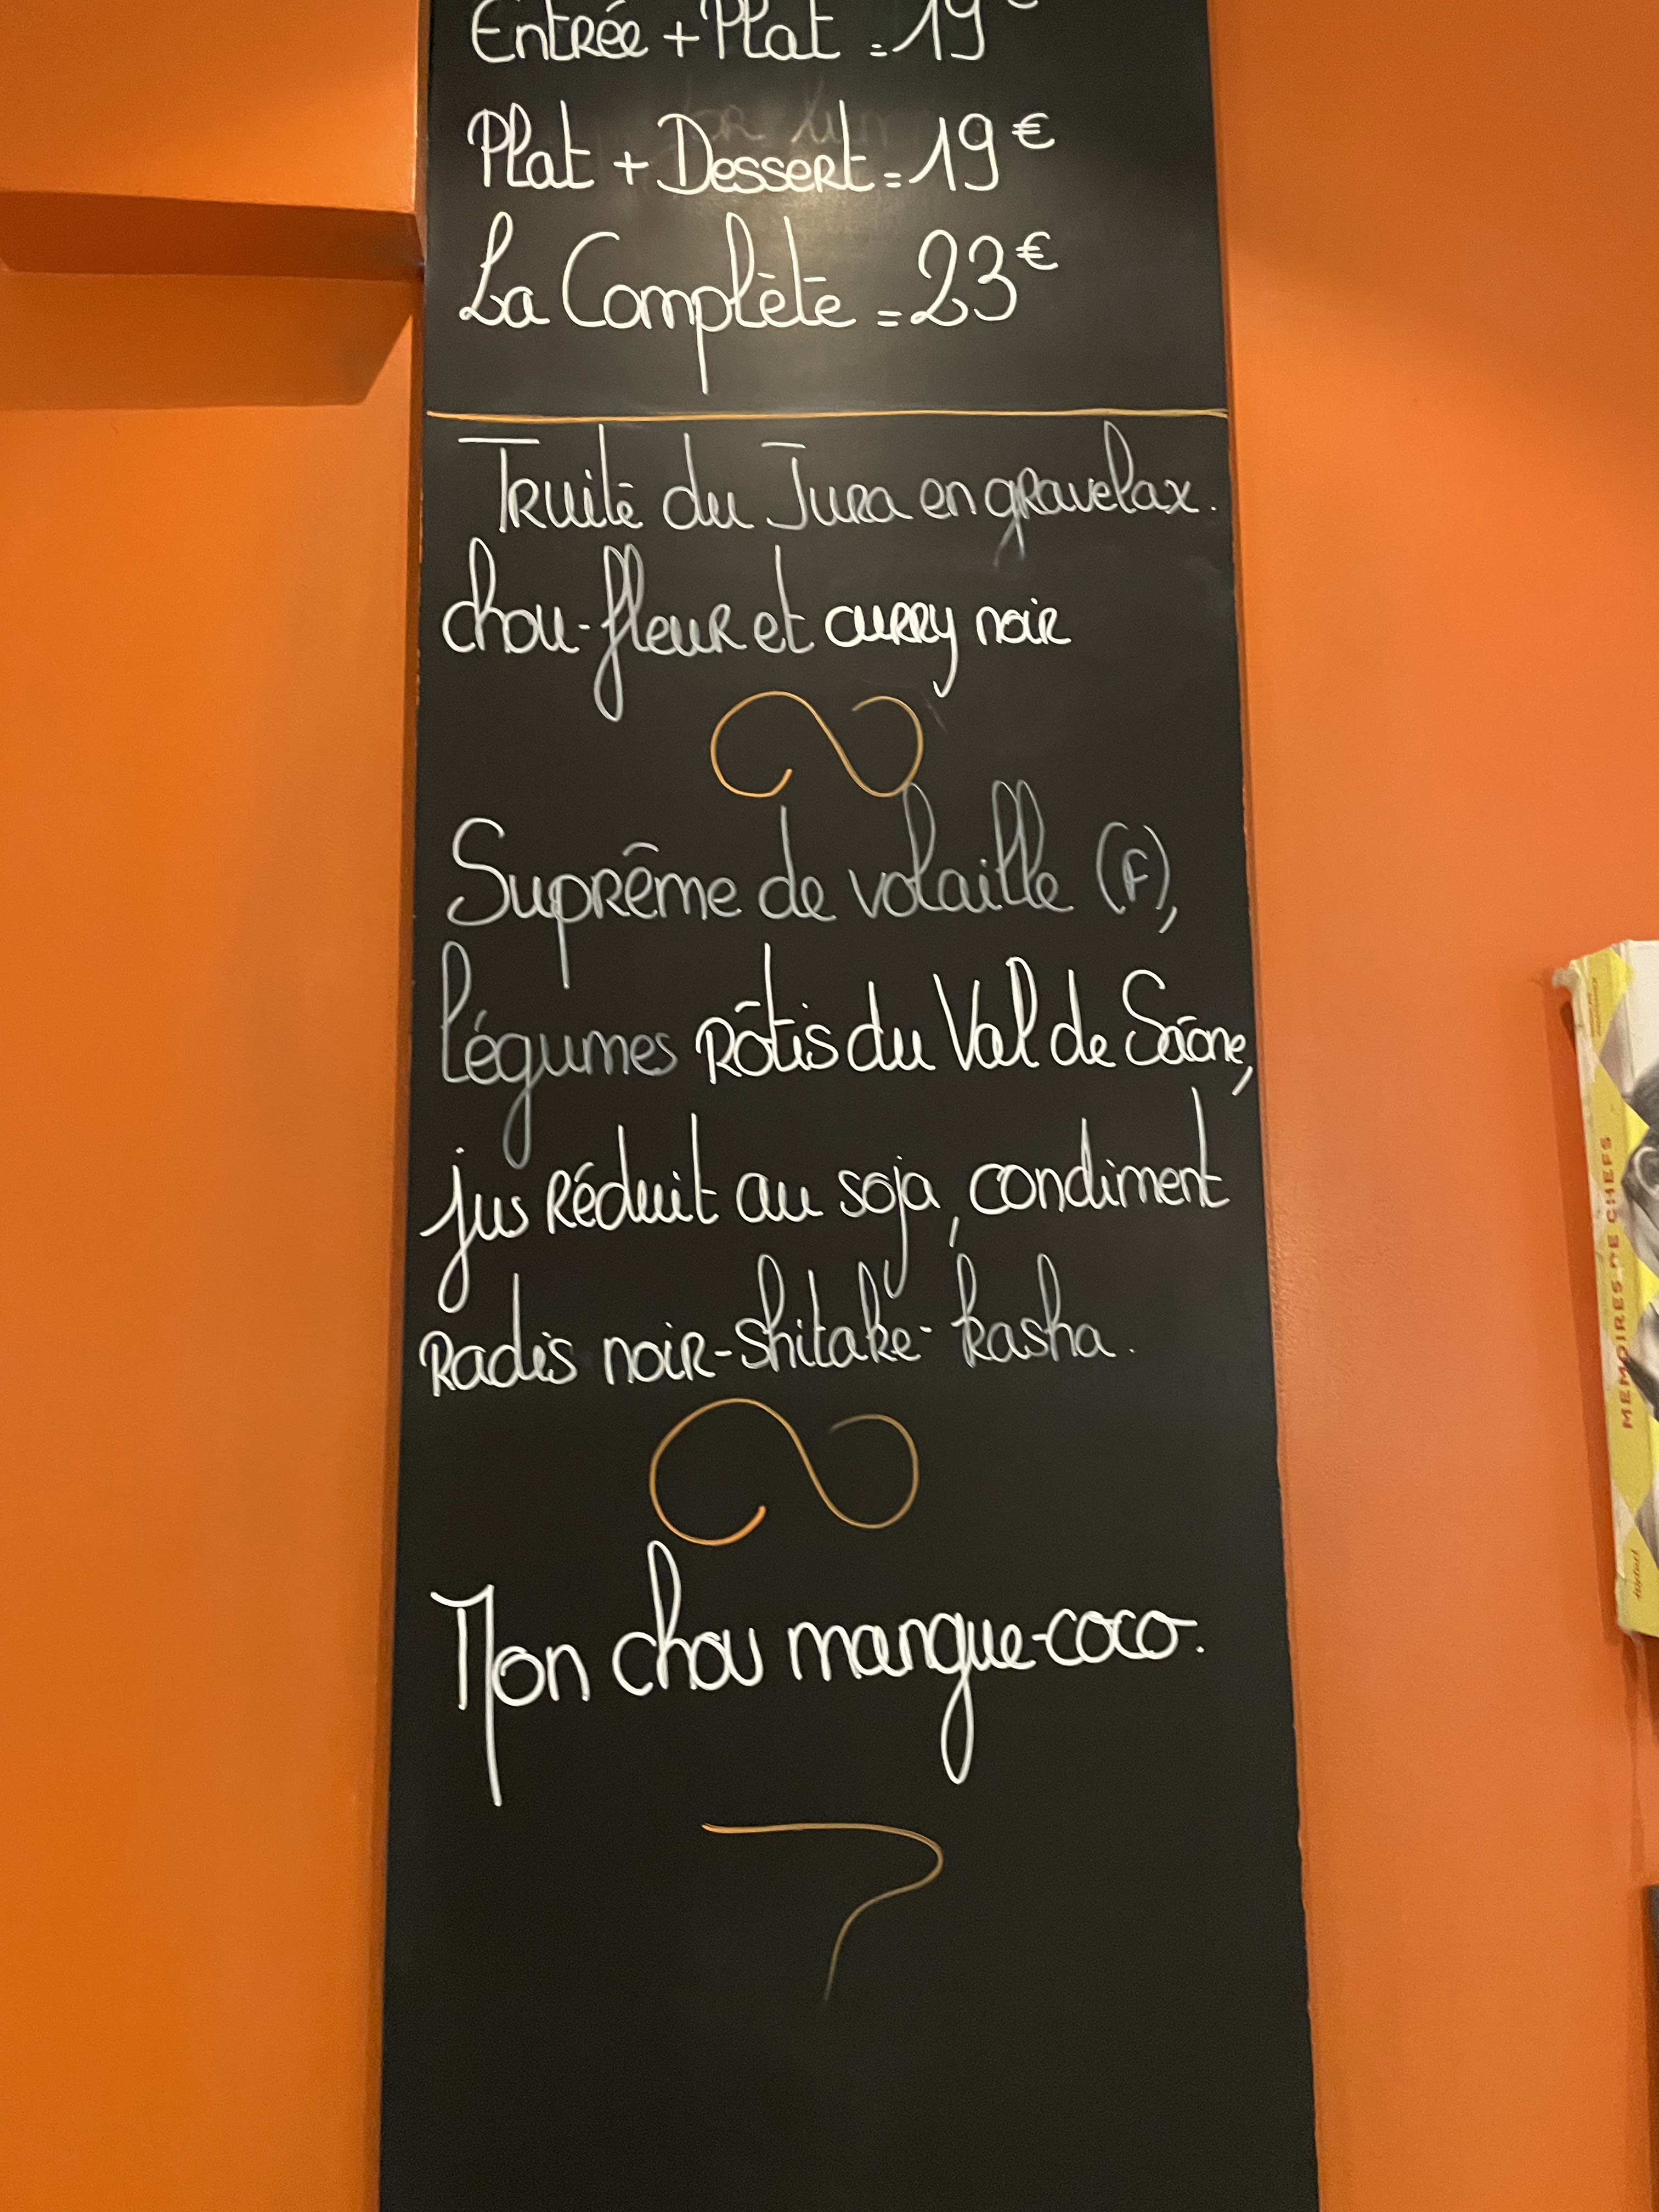 Entrée + Plat = 19€
Plat + Dessert = 19€
La Complète = 23€
Truite du Jura en gravelax.
chou-fleur et curry noir
Suprême de volaille (F),
légumes rôtis du Val de Saône,
jus réduit au soja, condiment
radis noir-shitake-kasha.
Mon chou mangue-coco.
MEMOIRES DE CHEFS